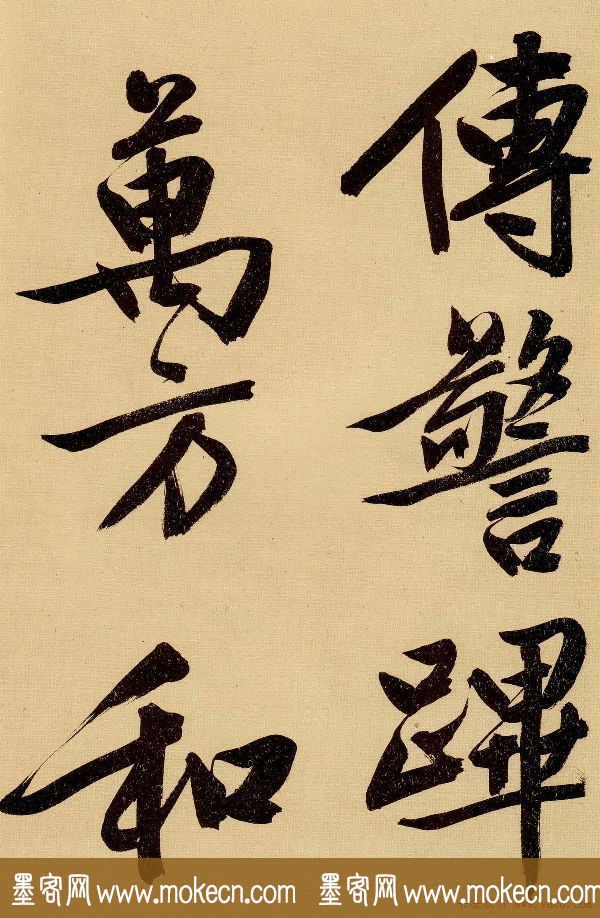 傳警蹕
萬方和
墨客网 www.mokecn.com 墨客网 www.mokecn.com